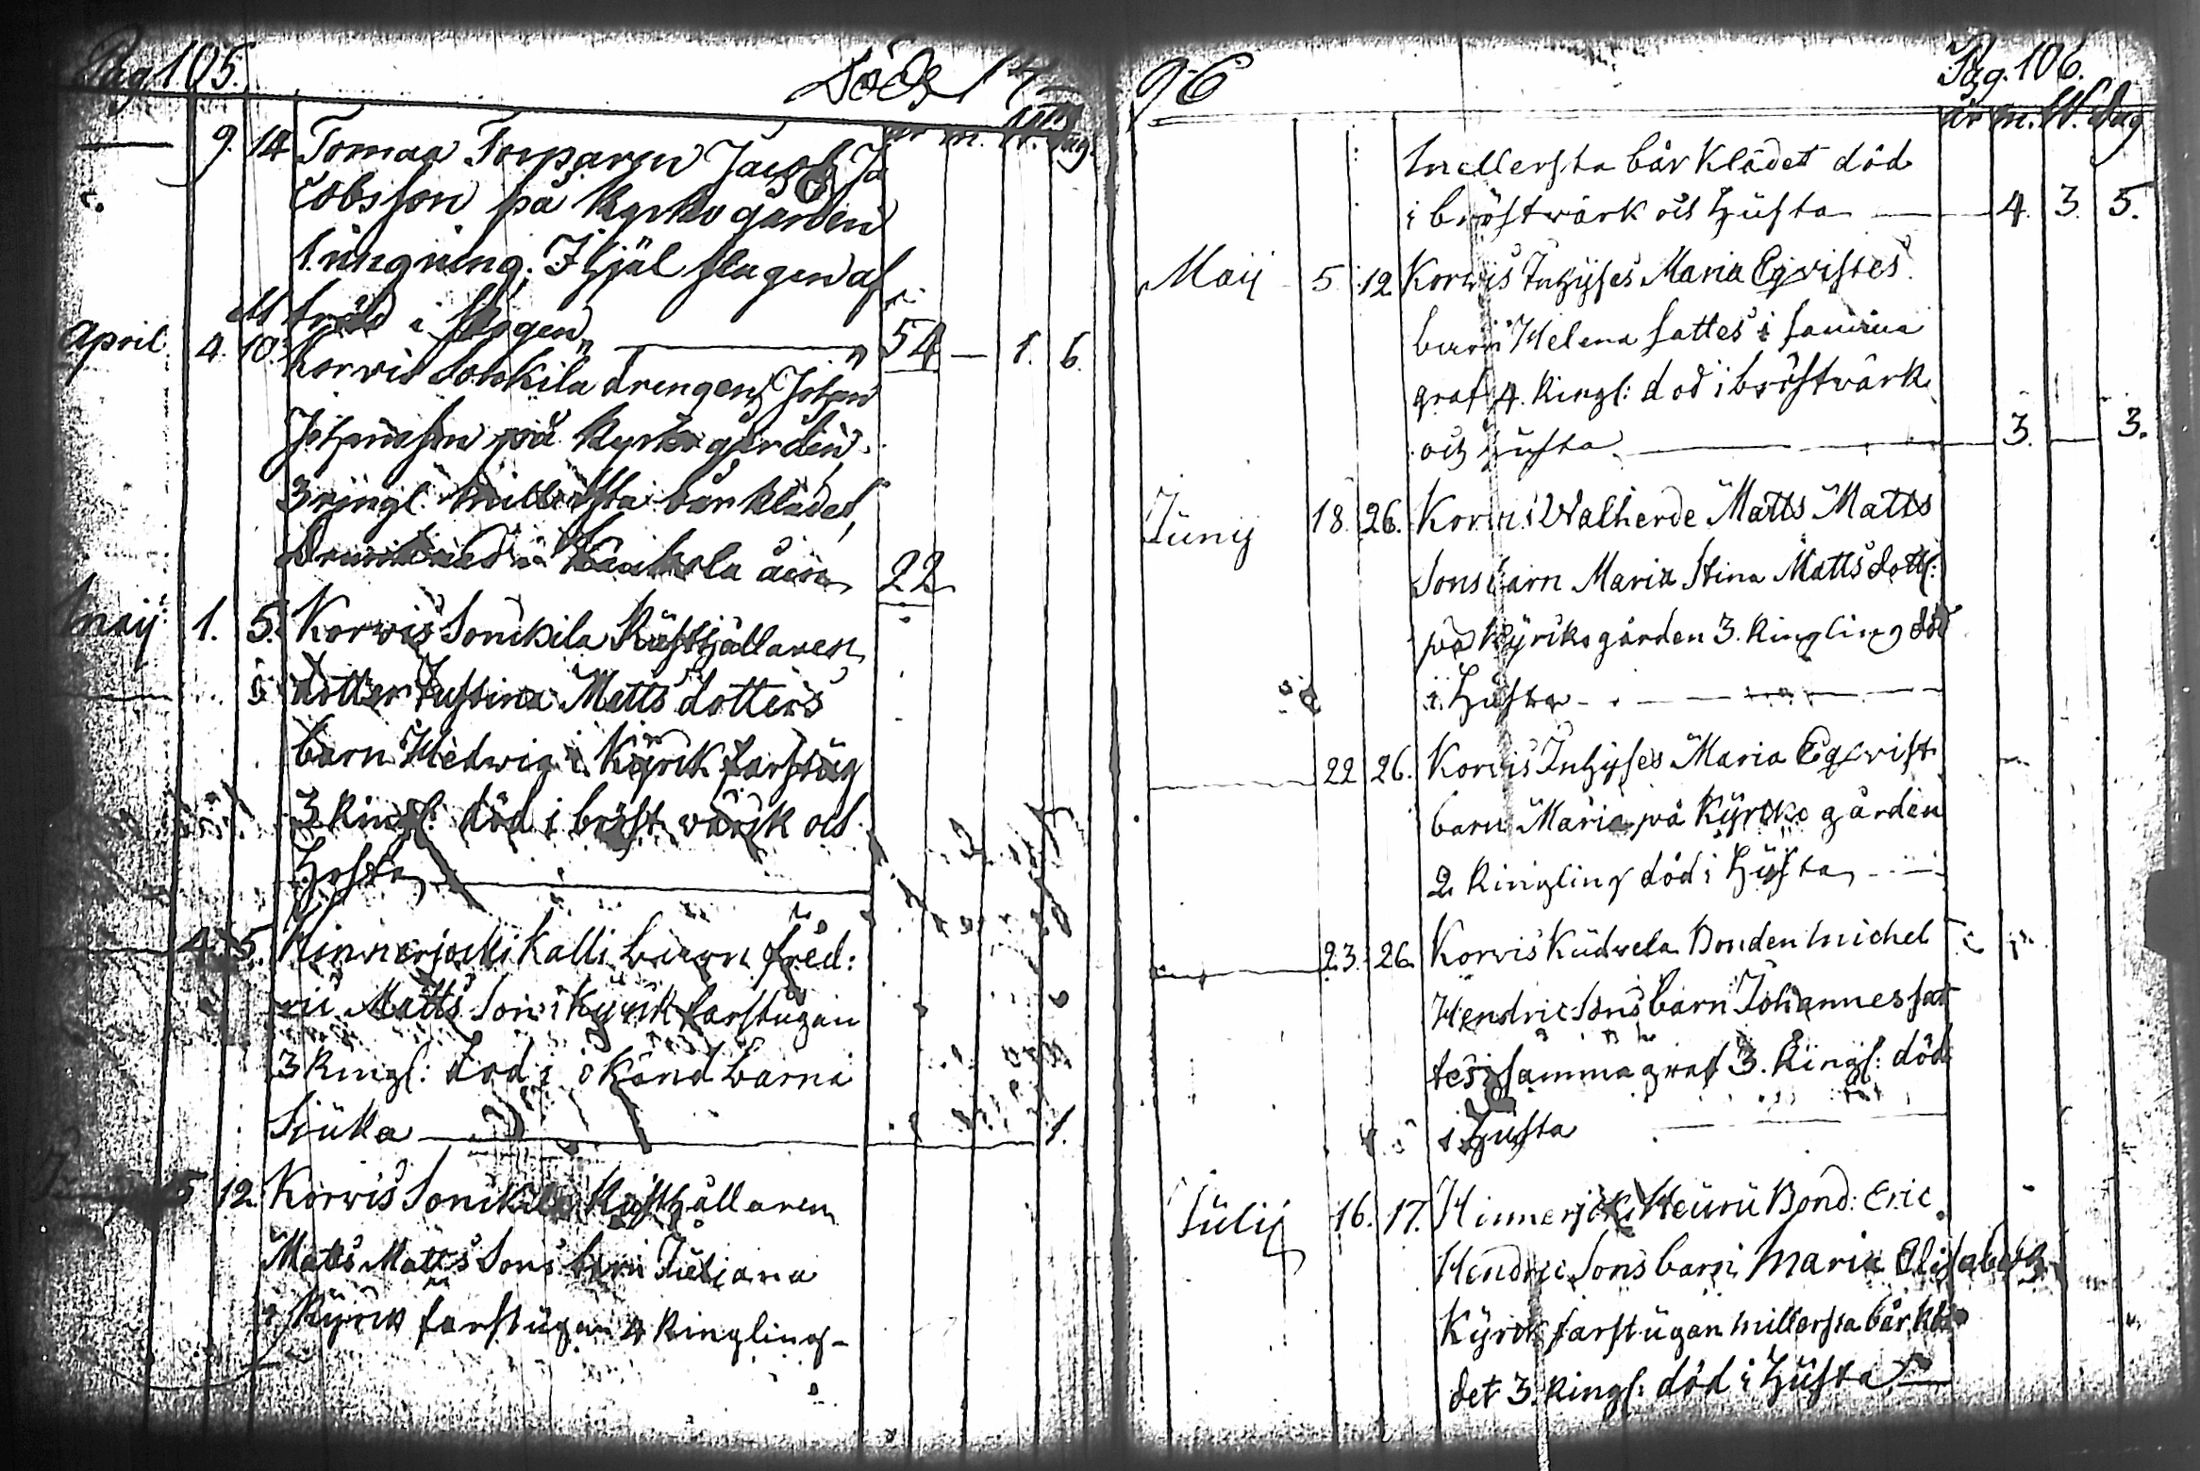 Pag 105.
Döde 17
år m. W. Dag
9. 14 Tomas Torparen Jacob Ja
cobsson på Kyrko gården
1. ringning. Ihjäl slagen af
träd i skogen 54 — 1. 6.
April 4. 10. Korvis Sonkila drengen Johan
Johansson på Kyrko gården
3 ringl. Millersta bårklädet
22
Maij 1. 5. Korvis Sonikila Rusthållaren
dotter Justina Matts dotters
barn Hedwig i Kyrck farstug
3 Ringl: död i bröst wärck och
Hosta
4. 5. Kinnerjocki Kalli barn fred:
ric Matts Son i Kyrck farstugan
3 Ringl: död i okänd barna
Siuka 1.
5 12. Korvis Sonikila Rusthållaren
Matts Matts Sons barn Juliana
i Kyrck farstugan 4 Ringling
96
Pag. 106.
år m. W. Dag
Mellersta bår Klädet död
i bröstwärk och Husta 4. 3. 5.
Maij 5 12. Korvis Inhyses Maria Eqvistes
barn Helena sattes i samma
graf 4. Ringl: död i bröstvärk
och Husta 3. 3.
Junij 18. 26. Korvis Walherde Matts Matts
Sons barn Maria Stina Matts dott:
på Kyrko gården 3. Ringling död
i Husta
22 26. Korvis Inhyses Maria Eqvist
barn Maria på Kyrcko gården
2 Ringling död i Husta
23. 26. Korvis Kudvela Bonden Michel
Hendric Sons barn Johannes sat
tes i samma graf 3. Ringl: död
i Husta
Julij 16. 17. Hinnerjoki Heuru Bond: Eric
Hendric Sons barn Maria Elisabeth
Kyrck farstugan Millersta bår klä
det 3. Ringl: död i Husta